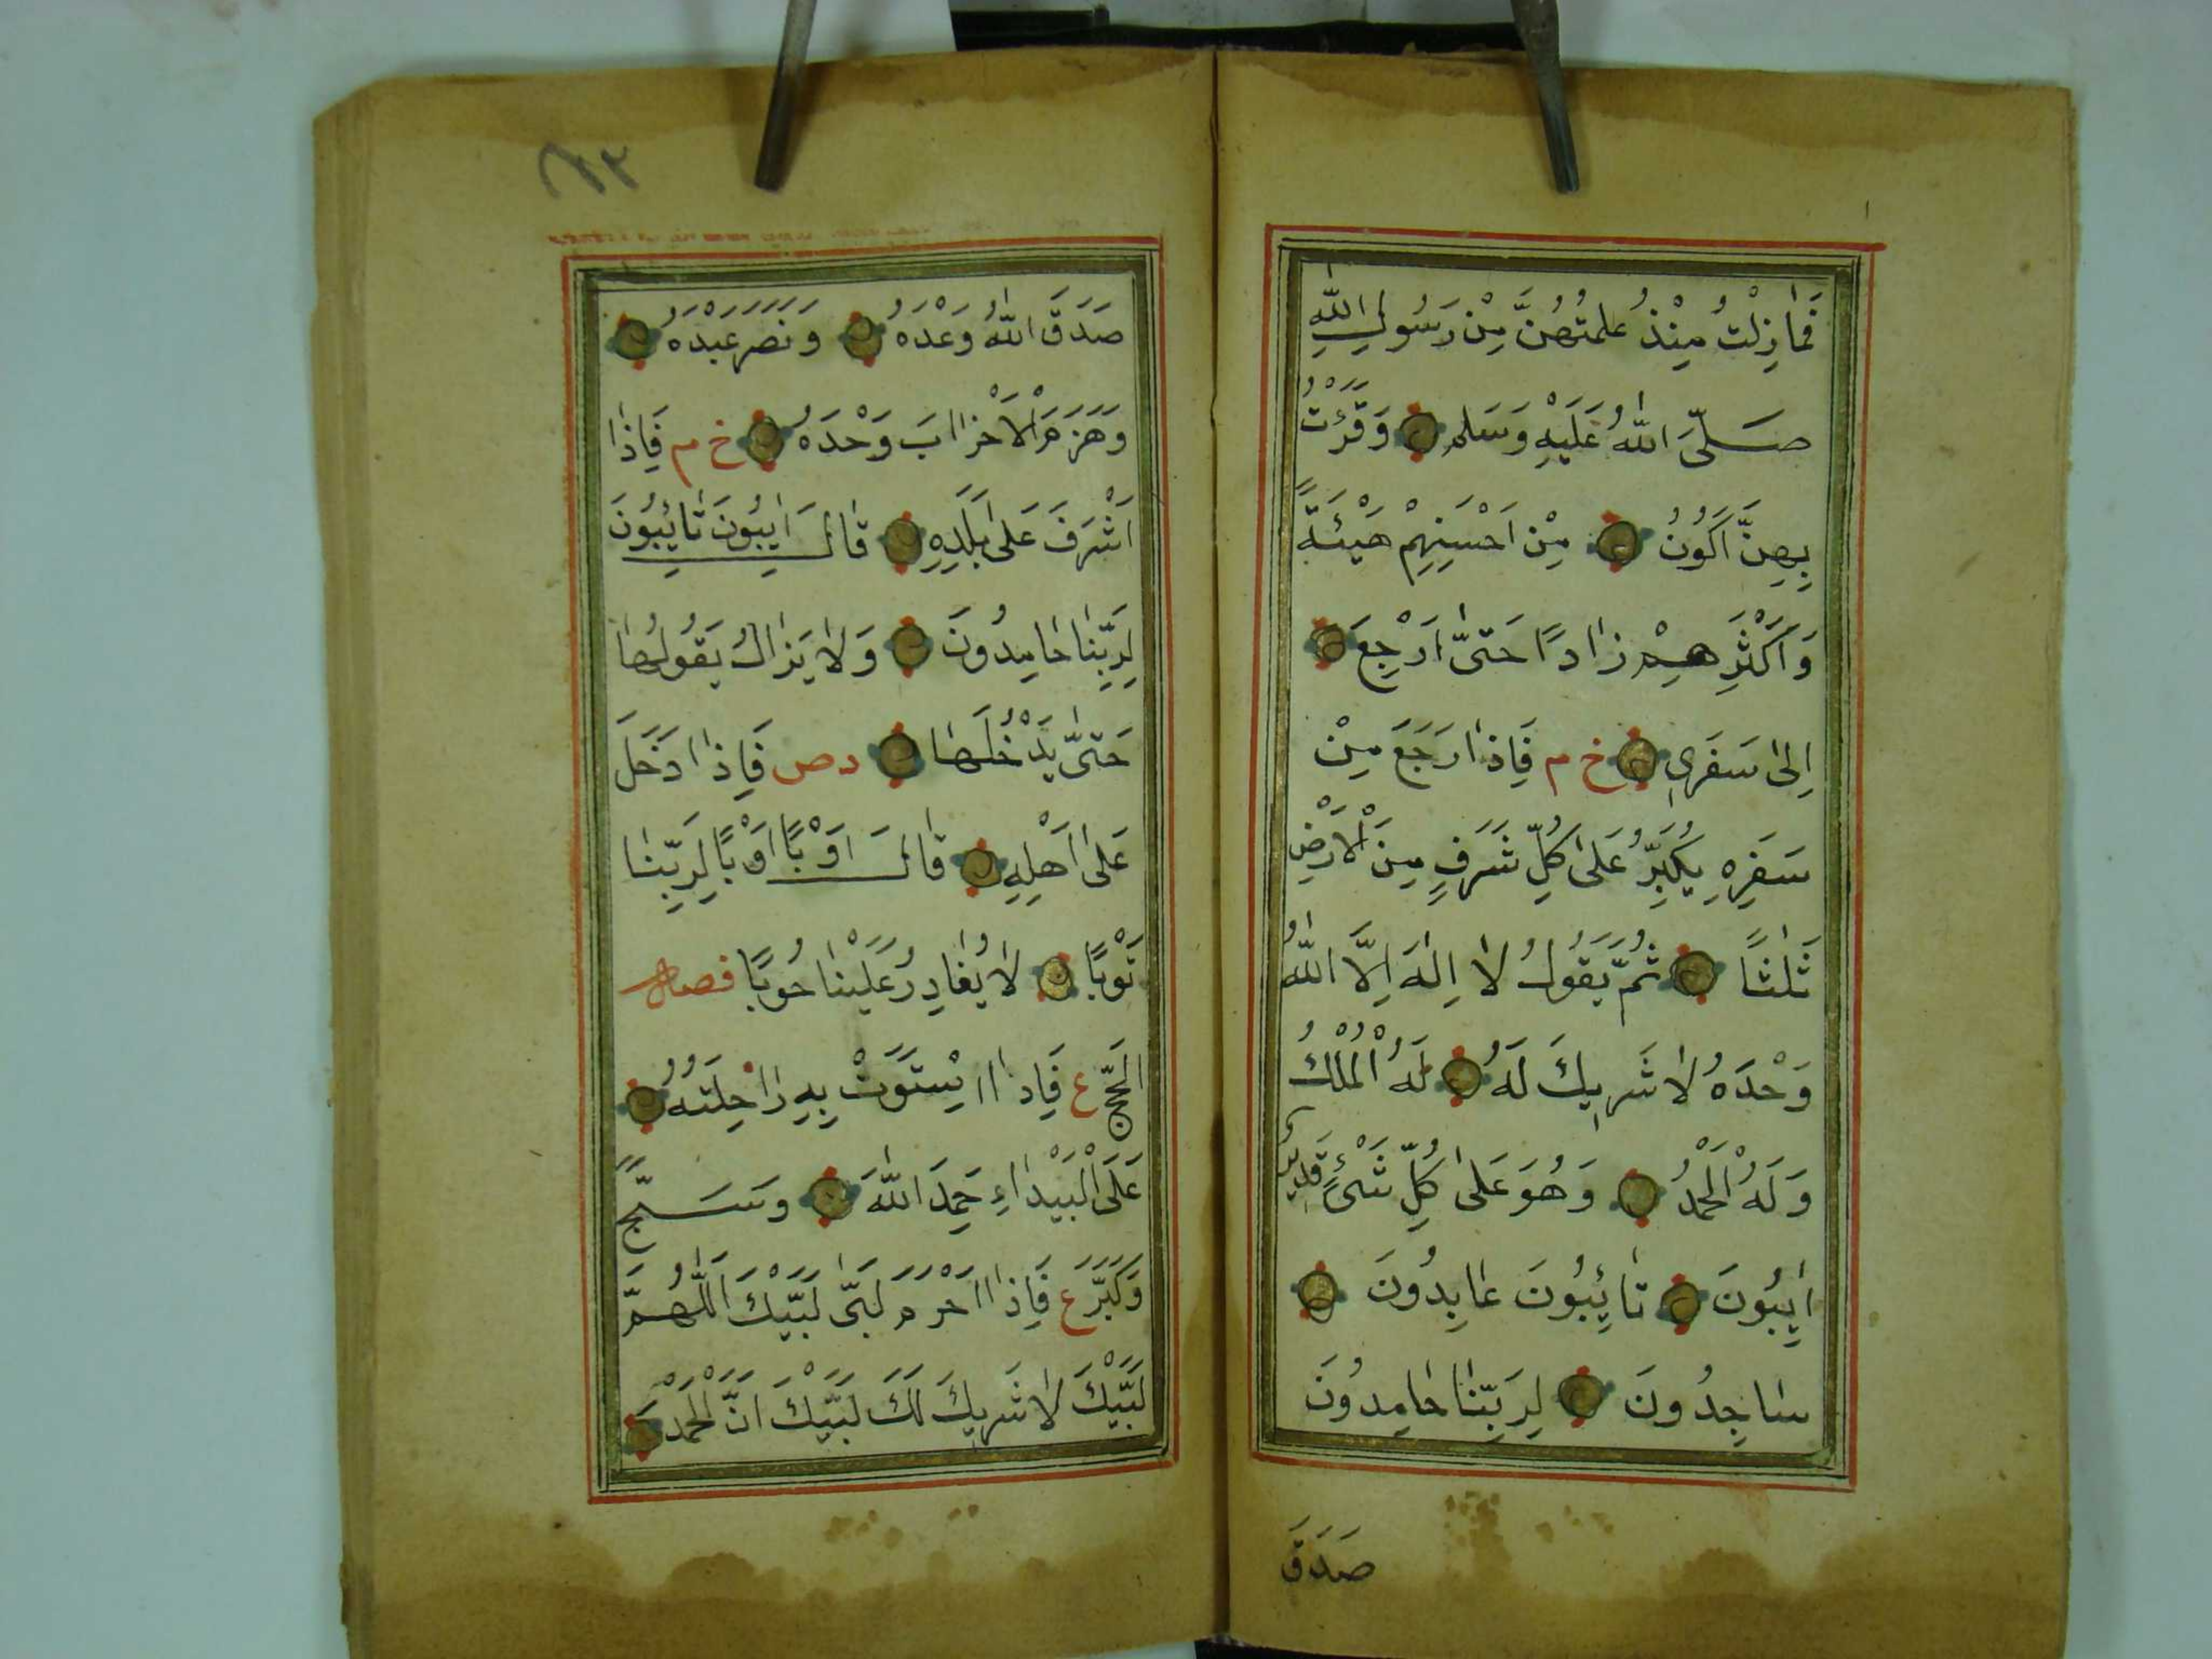 فَمَا زِلْتُ مُنْذُ عَلِمْتُهُنَّ مِنْ رَسُولِ اللّٰهِ
صَلَّى اللّٰهُ عَلَيْهِ وَسَلم وَقَرَئْتُ
بِهِنَّ اَكُونُ مِنْ اَحْسَنِهِمْ هَيْئَةً
وَاَكْثَرِهِمْ زَادًا حَتّٰى اَرْجِعَ
اِلٰى سَفَرِي خ م فَاِذَا رَجَعَ مِنْ
سَفَرِهِ يُكَبِّرُ عَلٰى كُلِّ شَرَفٍ مِنَ الْاَرْضِ
ثَلٰثًا ثُمَّ يَقُولُ لَا اِلٰهَ اِلَّا اللّٰهُ
وَحْدَهُ لَا شَرِيكَ لَهُ لَهُ الْمُلْكُ
وَلَهُ الْحَمْدُ وَهُوَ عَلٰى كُلِّ شَيْءٍ قَدِير
اٰيِبُونَ تَائِبُونَ عَابِدُونَ
سَاجِدُونَ لِرَبِّنَا حَامِدُونَ
صَدَقَ
٦٣
صَدَقَ اللّٰهُ وَعْدَهُ وَنَصَرَ عَبْدَهُ
وَهَزَمَ الْاَحْزَابَ وَحْدَهُ خ م فَاِذَا
اَشْرَفَ عَلٰى بَلَدِهِ قَالَ اٰيِبُونَ تَائِبُونَ
لِرَبِّنَا حَامِدُونَ وَلَا يَزَالُ يَقُولُهَا
حَتّٰى يَدْخُلَهَا د ص فَاِذَا دَخَلَ
عَلٰى اَهْلِهِ قَالَ اَوْبًا اَوْبًا لِرَبِّنَا
تَوْبًا لَا يُغَادِرُ عَلَيْنَا حُوبًا فصل
الْحَجّ ع فَاِذَا اسْتَوَتْ بِهِ رَاحِلَتُهُ
عَلَى الْبَيْدَاءِ حَمِدَ اللّٰهَ وَسَبَّحَ
وَكَبَّرَ ع فَاِذَا اَحْرَمَ لَبّٰى لَبَّيْكَ اَللّٰهُمَّ
لَبَّيْكَ لَا شَرِيكَ لَكَ لَبَّيْكَ اِنَّ الْحَمْدَ